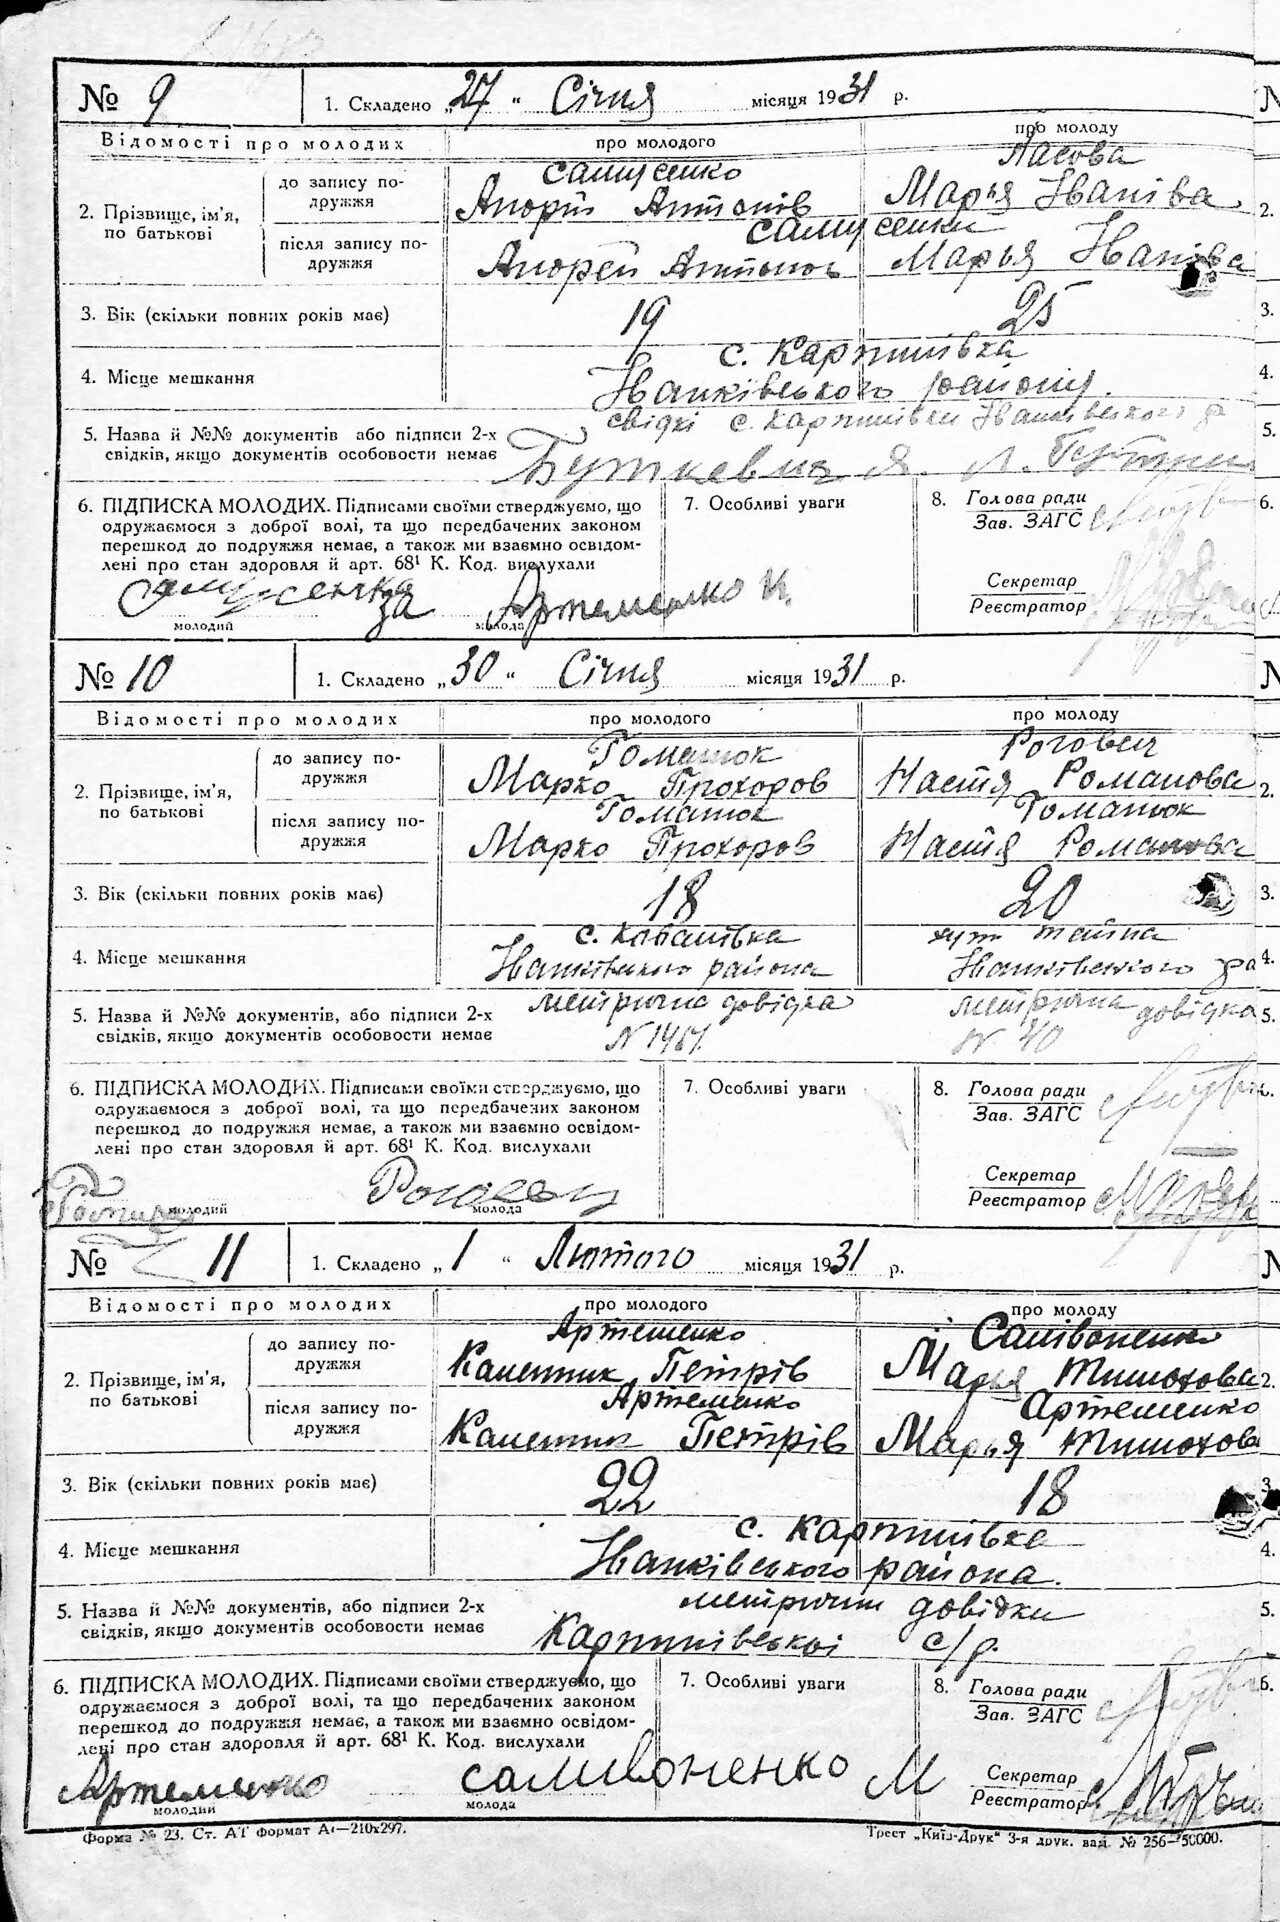 № 9
1. Складено „27“ Січня місяця 1931 р.
Відомості про молодих
про молодого
про молоду
2. Прізвище, ім'я, по батькові
до запису подружжя
Самусенко
Андрій Антонів
Ласова
Марья Іванівна
після запису подружжя
Самусенки
Андрей Антонов
Марья Іванівна
3. Вік (скільки повних років має)
19
25
4. Місце мешкання
с. Карпилівка
Іванківського району
5. Назва й №№ документів або підписи 2-х
свідків, якщо документів особовости немає
свідкі с. Карпилівки Іванківського р
Буткевич Я. Л.
6. ПІДПИСКА МОЛОДИХ. Підписами своїми стверджуємо, що
одружаємося з доброї волі, та що передбачених законом
перешкод до подружжя немає, а також ми взаємно освідом-
лені про стан здоровля й арт. 68¹ К. Код. вислухали
7. Особливі уваги
8. Голова ради
Зав. ЗАГС
Секретар
Реєстратор
Самусенка
за Артеменко К.
молодий
молода
№ 10
1. Складено „30“ Січня місяця 1931 р.
Відомості про молодих
про молодого
про молоду
2. Прізвище, ім'я,
по батькові
до запису по-
дружжя
Гоманюк
Марко Прохоров
Рогович
Настя Романова
після запису по-
дружжя
Гоманюк
Марко Прохоров
Гоманюк
Настя Романова
3. Вік (скільки повних років має)
18
20
4. Місце мешкання
с. Ковалівка
Іванківського района
хут
Іванківського ра
5. Назва й №№ документів, або підписи 2-х
свідків, якщо документів особовости немає
метрична довідка
метрична довідка
N 40
6. ПІДПИСКА МОЛОДИХ. Підписами своїми стверджуємо, що
одружаємося з доброї волі, та що передбачених законом
перешкод до подружжя немає, а також ми взаємно освідом-
лені про стан здоровля й арт. 68¹ К. Код. вислухали
7. Особливі уваги
8. Голова ради
Зав. ЗАГС
Секретар
Реєстратор
молодий
Рогович
молода
№ 11
1. Складено „1“ Лютого місяця 1931 р.
Відомості про молодих
про молодого
про молоду
2. Прізвище, ім'я,
по батькові
до запису по-
дружжя
Артеменко
Калетник Петрів
Салівоненко
Марья Тимохова
після запису по-
дружжя
Артеменко
Калетник Петрів
Артеменко
Марья Тимохова
3. Вік (скільки повних років має)
22
18
4. Місце мешкання
с. Карпилівка
Іванківського района.
5. Назва й №№ документів, або підписи 2-х
свідків, якщо документів особовости немає
метричні довідки
Карпилівської с/р.
6. ПІДПИСКА МОЛОДИХ. Підписами своїми стверджуємо, що
одружаємося з доброї волі, та що передбачених законом
перешкод до подружжя немає, а також ми взаємно освідом-
лені про стан здоровля й арт. 68¹ К. Код. вислухали
7. Особливі уваги
8. Голова ради
Зав. ЗАГС
Секретар
Реєстратор
Артеменко
молодий
Саливоненко М
молода
Форма № 23. Ст. АТ Формат А4—210х297.
Трест „Київ-Друк“ 3-я друк. зал. № 256—50000.